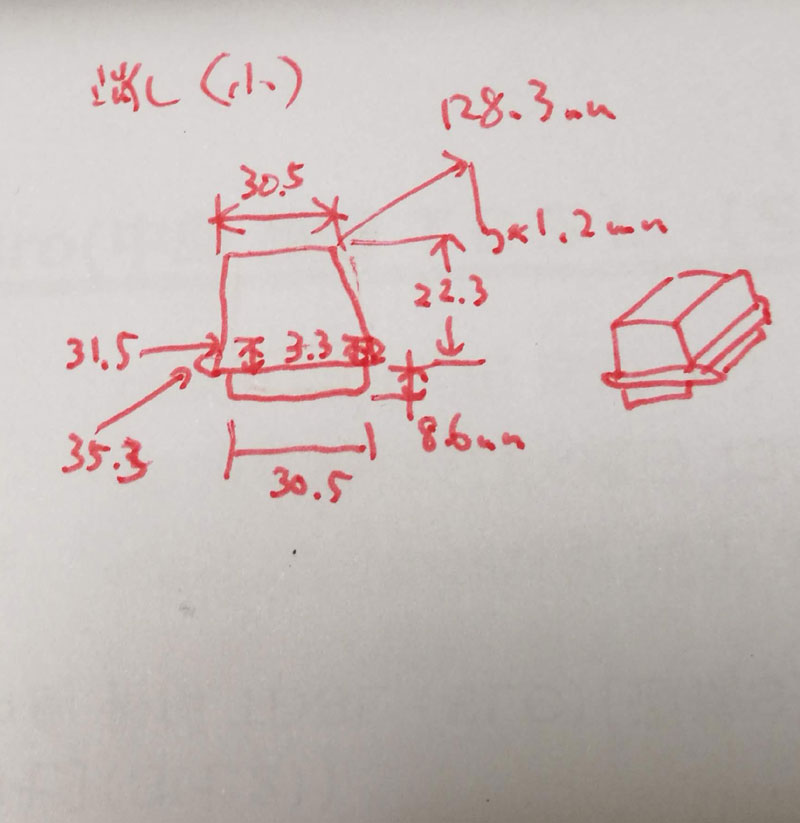 消し (小)
128.3mm
30.5
1.2mm
22.3
31.5
3.3
35.3
8.6mm
30.5